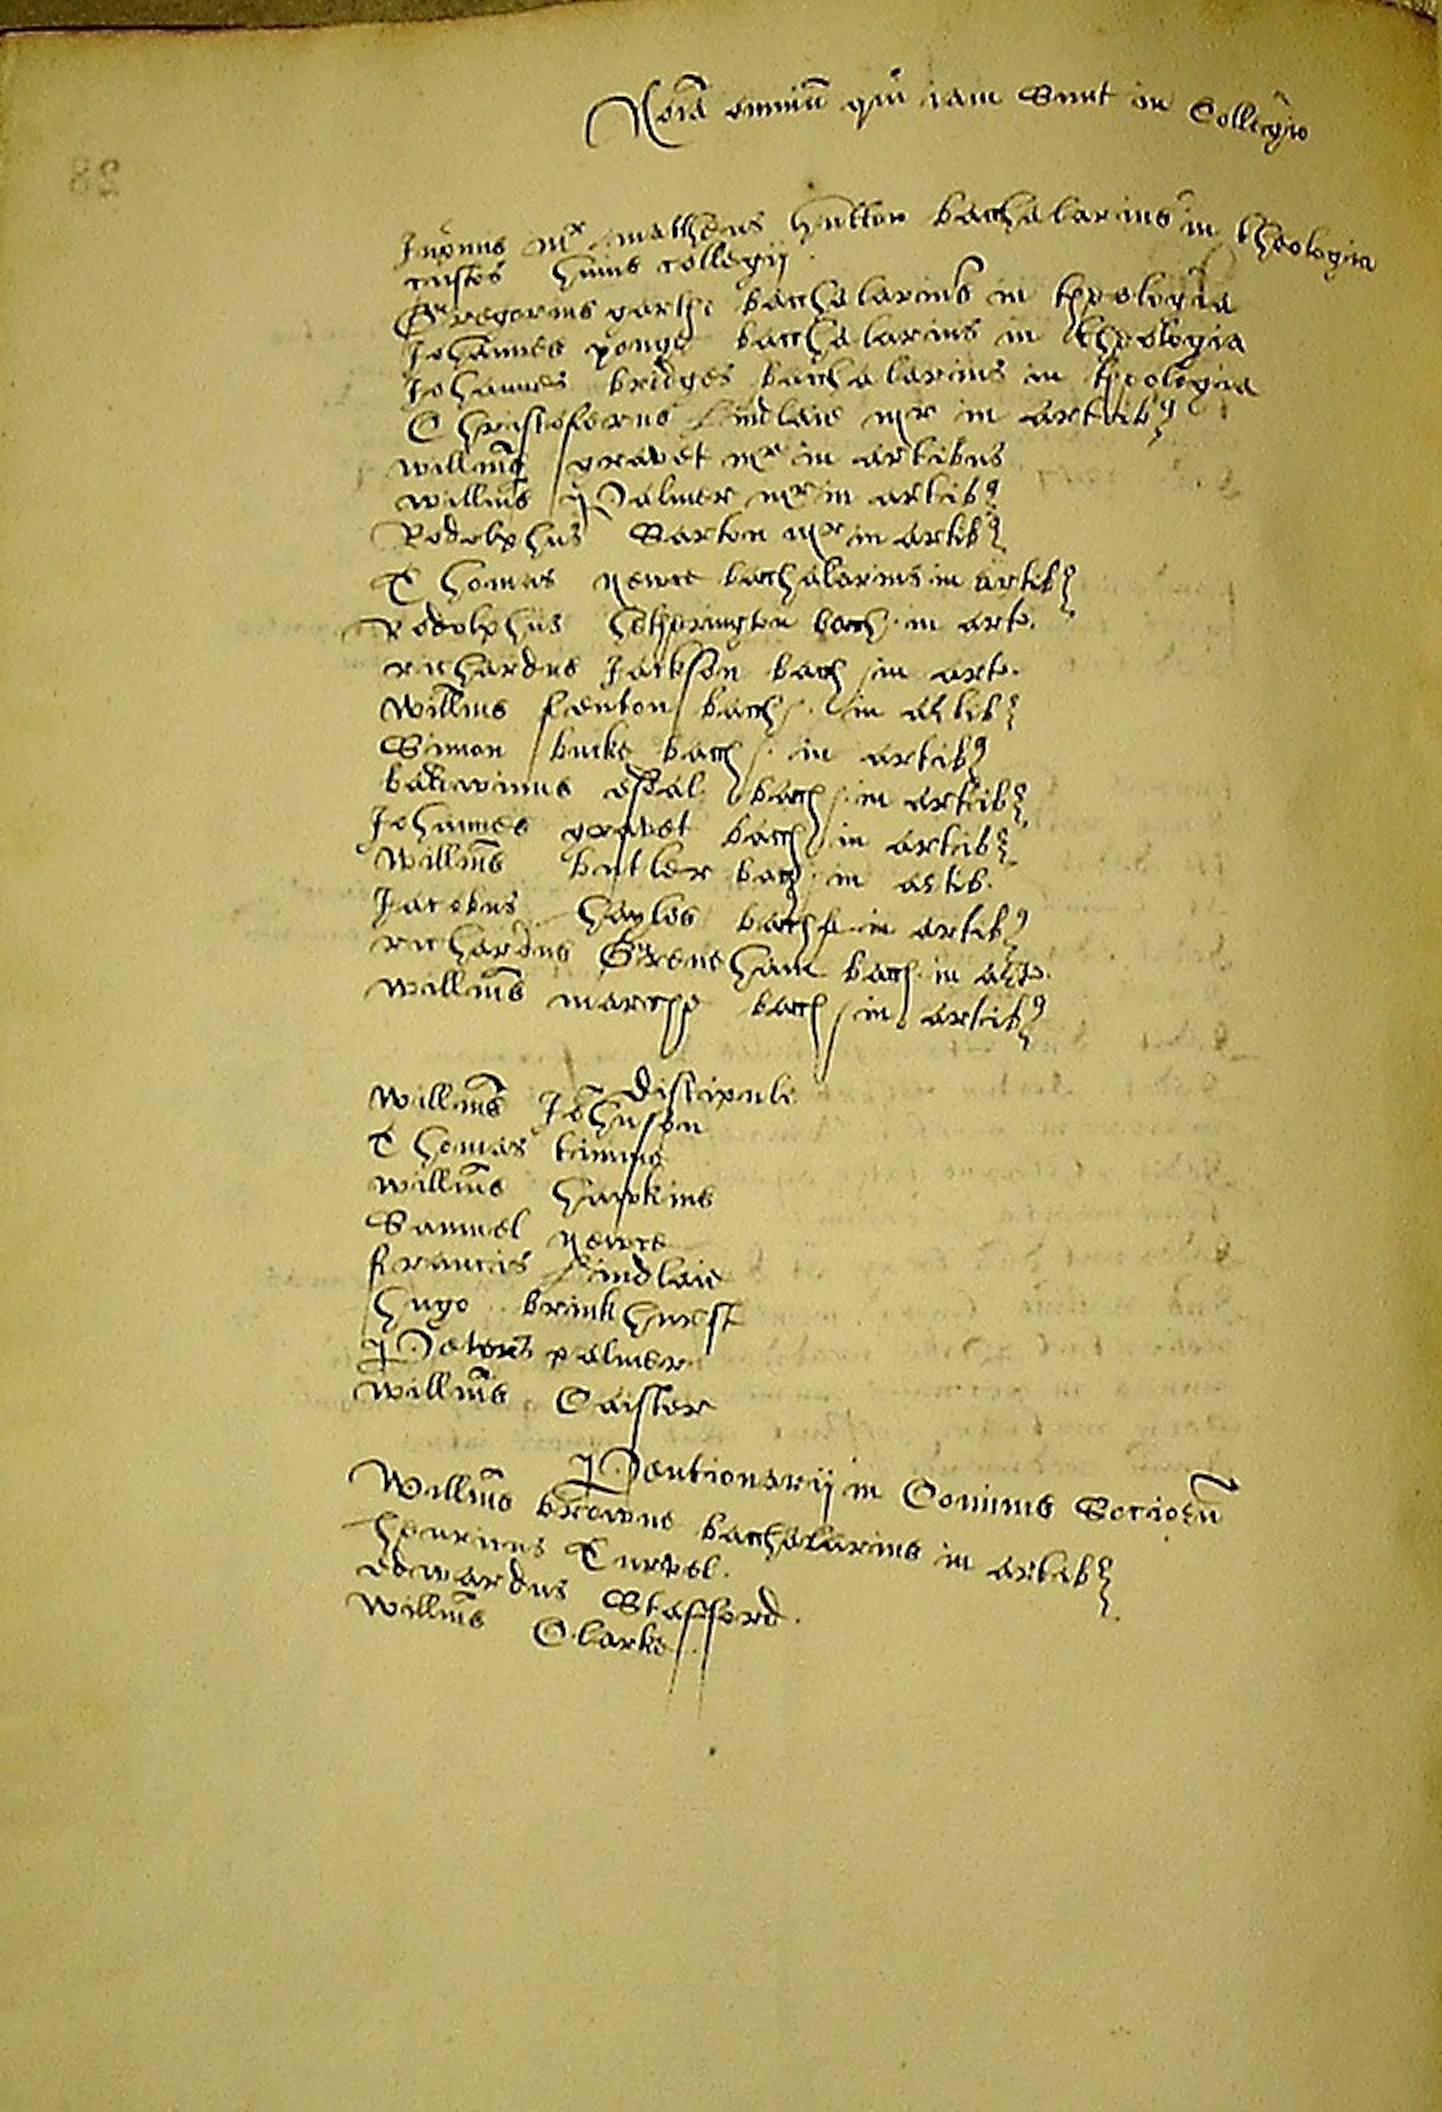 Noīa omniū qui iam Sunt in Collegio
Inp̄mis mr mattheus Hutton bacchalarius in theologia
custos huius collegij
Gregorius garthe bacchalarius in theologia
Johannes yonge bacchalarius in theologia
Johannes bridges bacchalarius in theologia
Christoferus Lindlaie mr in artibȝ
willm̄s gravet mr in artibus
willm̄s Palmer mr in artibȝ
Rodolphus Barton mr in artibȝ
Thomas newce bacchalarius in artibȝ
Rodolphus hetherington bacch. in arto.
richardus Jackson bacch in arto.
Willm̄s fenton bacch. in artibȝ
Simon buke bacch. in artibȝ
baldwinus bacch. in artibȝ
Johannes gravet bacch in artibȝ
Willm̄s butler bacc. in artib.
Jacobus hayles bacch in artibȝ
richardus Greneham bacch. in arto.
willm̄s marche bacch in artibȝ
Discipuli
Willm̄s Johnson
Thomas timme
willm̄s hawkins
Samuel newce
francis Lindlaie
hugo brinkhurst
Peterus palmer
willm̄s Caister
Pentionarij in Comunis Sociorū
Willm̄s browne bacchalarius in artibȝ
henricus Curwel.
edwardus Stafford.
Willm̄s Clarke